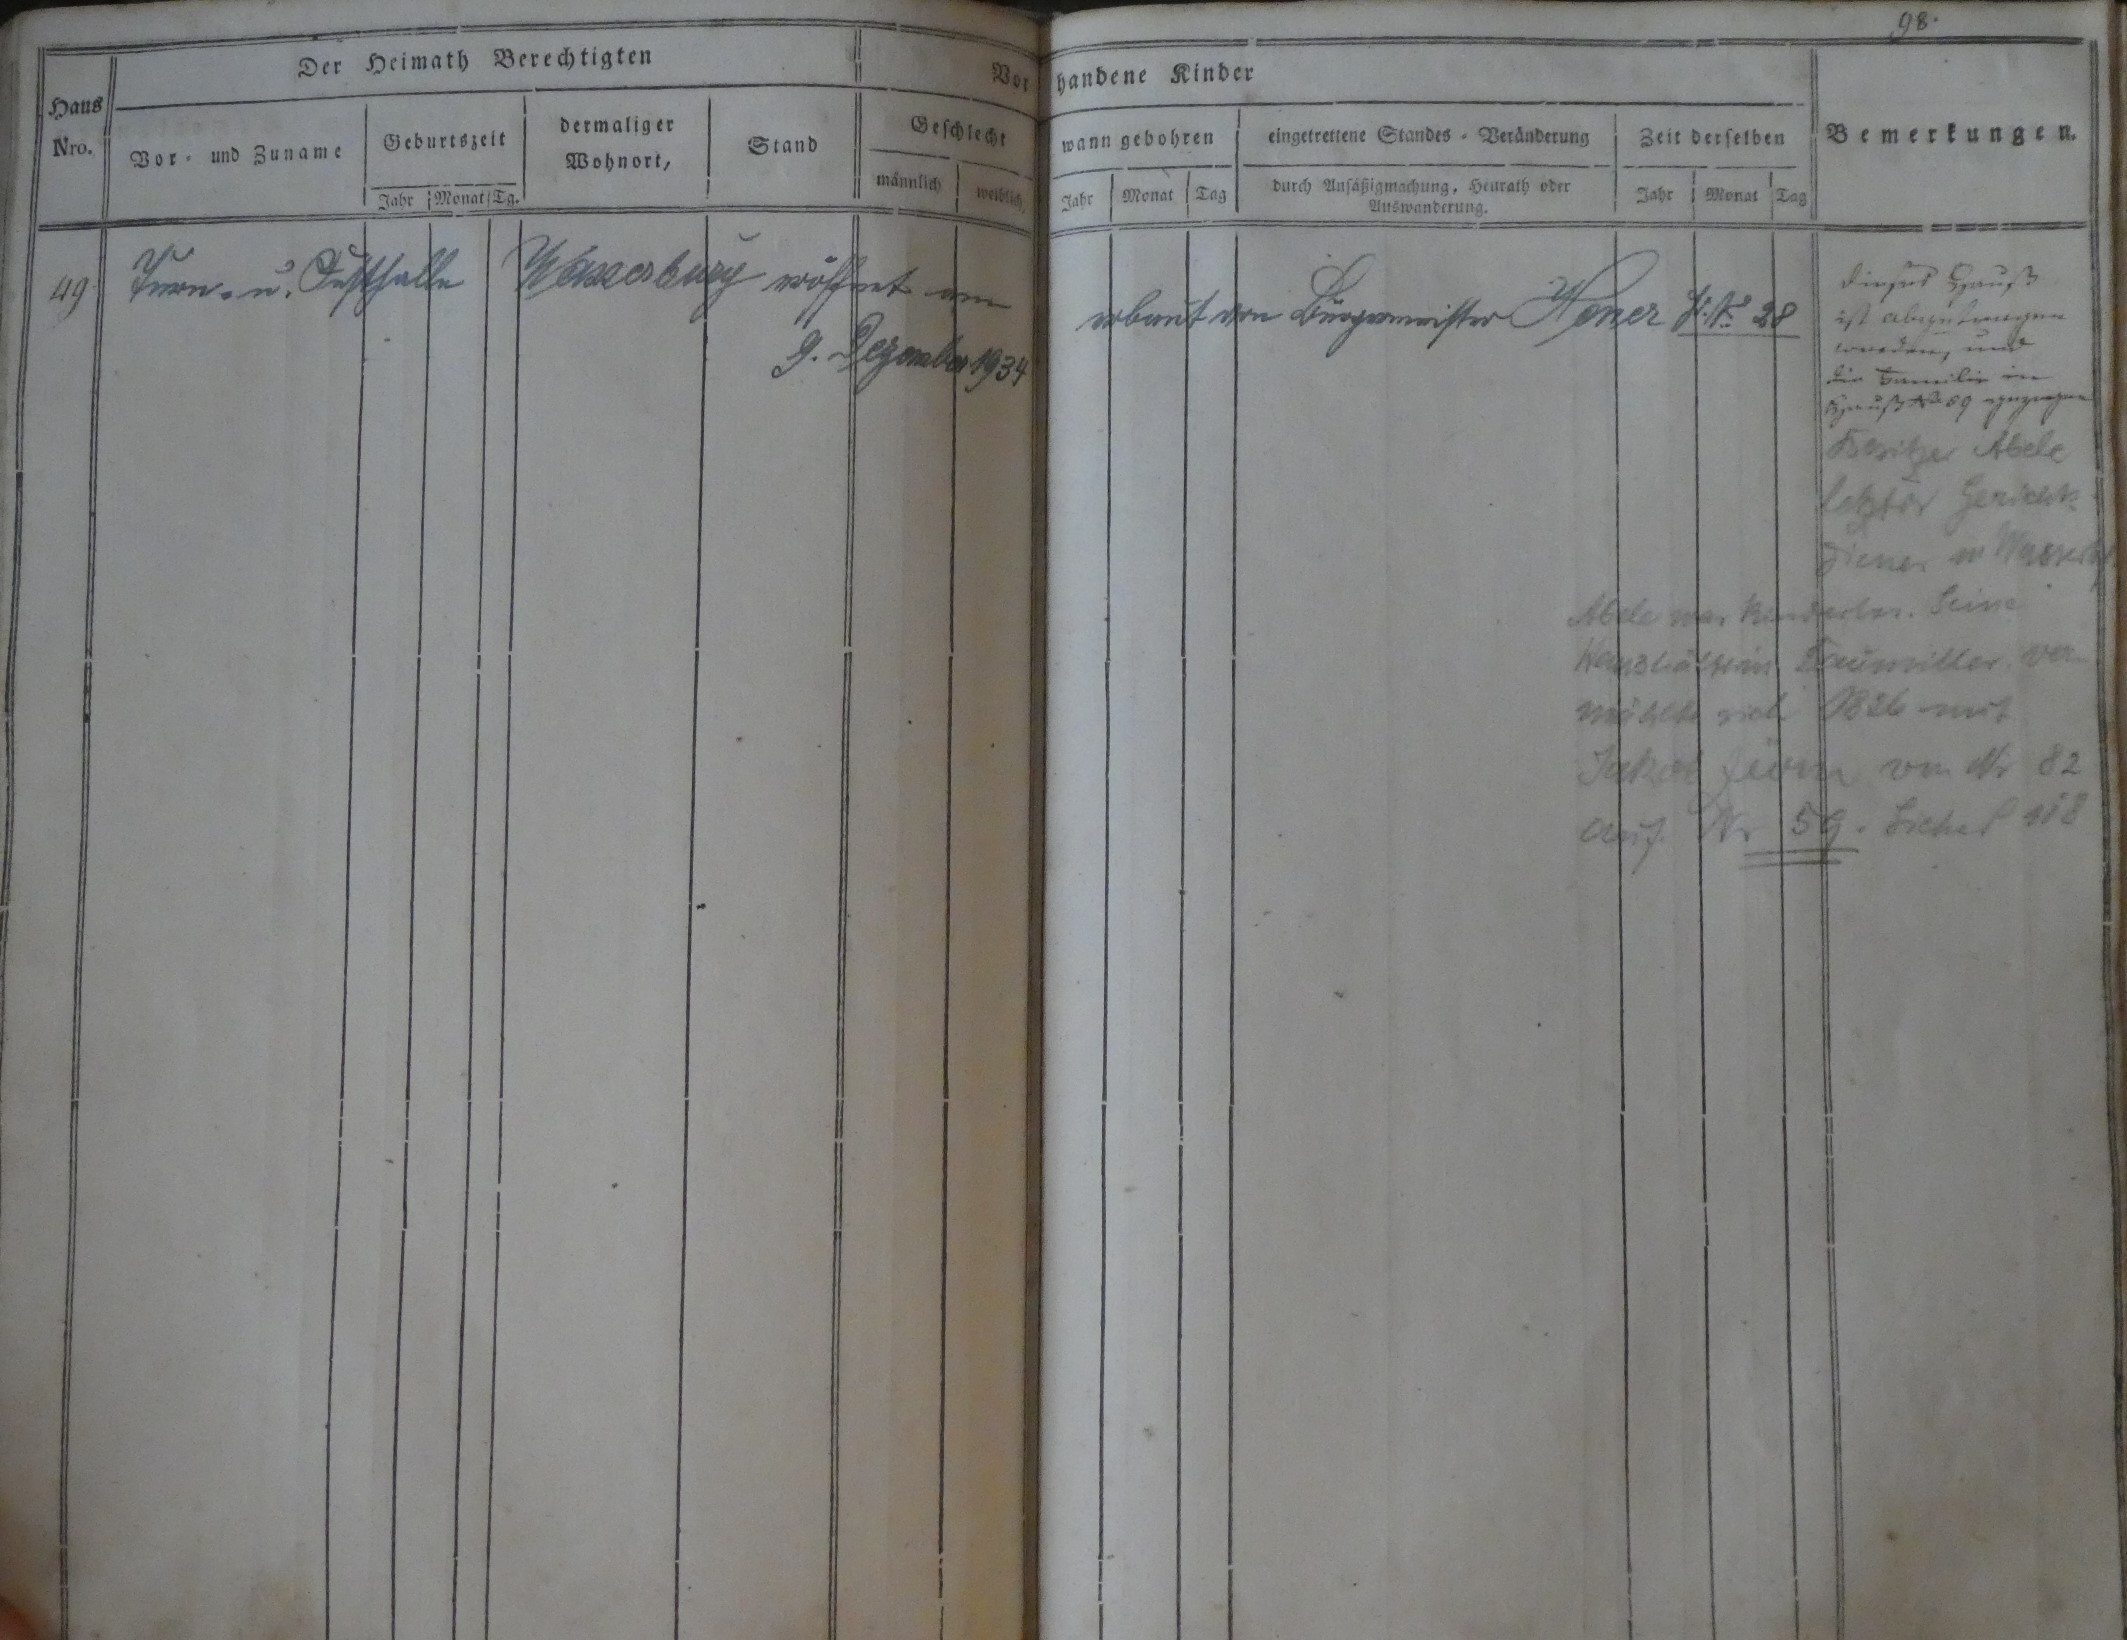 98.
Der Heimath Berechtigten
Vorhandene Kinder
Haus Nro.
Vor- und Zuname
Geburtszeit
Jahr Monat Tg.
dermaliger Wohnort,
Stand
Geschlecht
männlich weiblich
wann gebohren
Jahr Monat Tag
eingetrettene Standes-Veränderung
durch Ansäßigmachung, Heurath oder
Auswanderung.
Zeit derselben
Jahr Monat Tag
Bemerkungen.
49 Turn- u. Festhalle Wasserburg eröffnet am
9. Dezember 1934
erbaut von Bürgermeister Hener H. No 28
Dieses Hauß
ist abgetragen
worden, und
die Familie in
Hauß No 59 gezogen
Besitzer Abele
letzter Gerichts-
diener in Wasserbg.
Abele war kinderlos. Seine
Haushälterin Baumiller ver-
mählte sich 1826 mit
Jakob von Nr 82
auf Nr 59. Siehe S 118